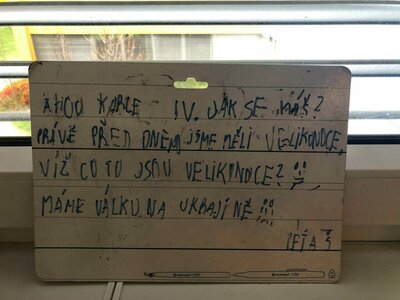 AHOJ KARLE IV. JAK SE MÁŠ?
PRÁVĚ PŘED DNEM JSME MĚLI VELIKONOCE,
VÍŠ CO TO JSOU VELIKONOCE?
MÁME VÁLKU NA UKRAJINĚ
PEŤA Š